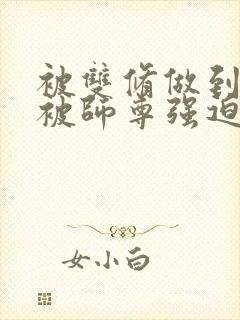 被雙脩做到
被師尊强迫
女小白